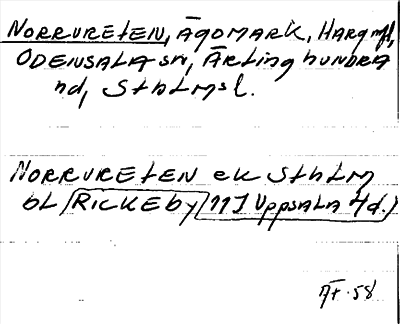 NORRVRETEN, ÄGOMARK, HARG mfl,
ODENSALA sn, ÄRLING hundra
hd, SthLMs l.
NORRVRETEN ek SthLM
bL RICKEby 11I Uppsala 4d.
ÄF. 58